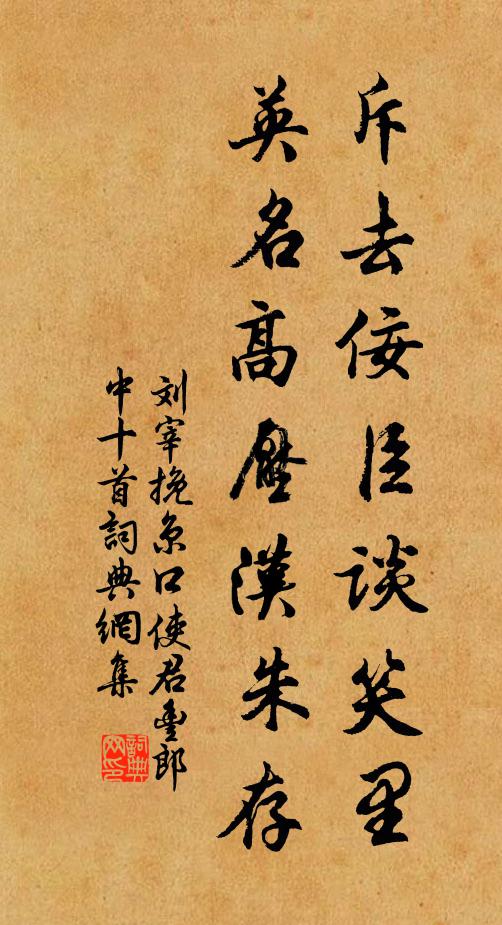 斥去佞臣谈笑里
英名高压汉朱存
刘宰挽京口使君丰郎
中十首词典网集
词典
网印